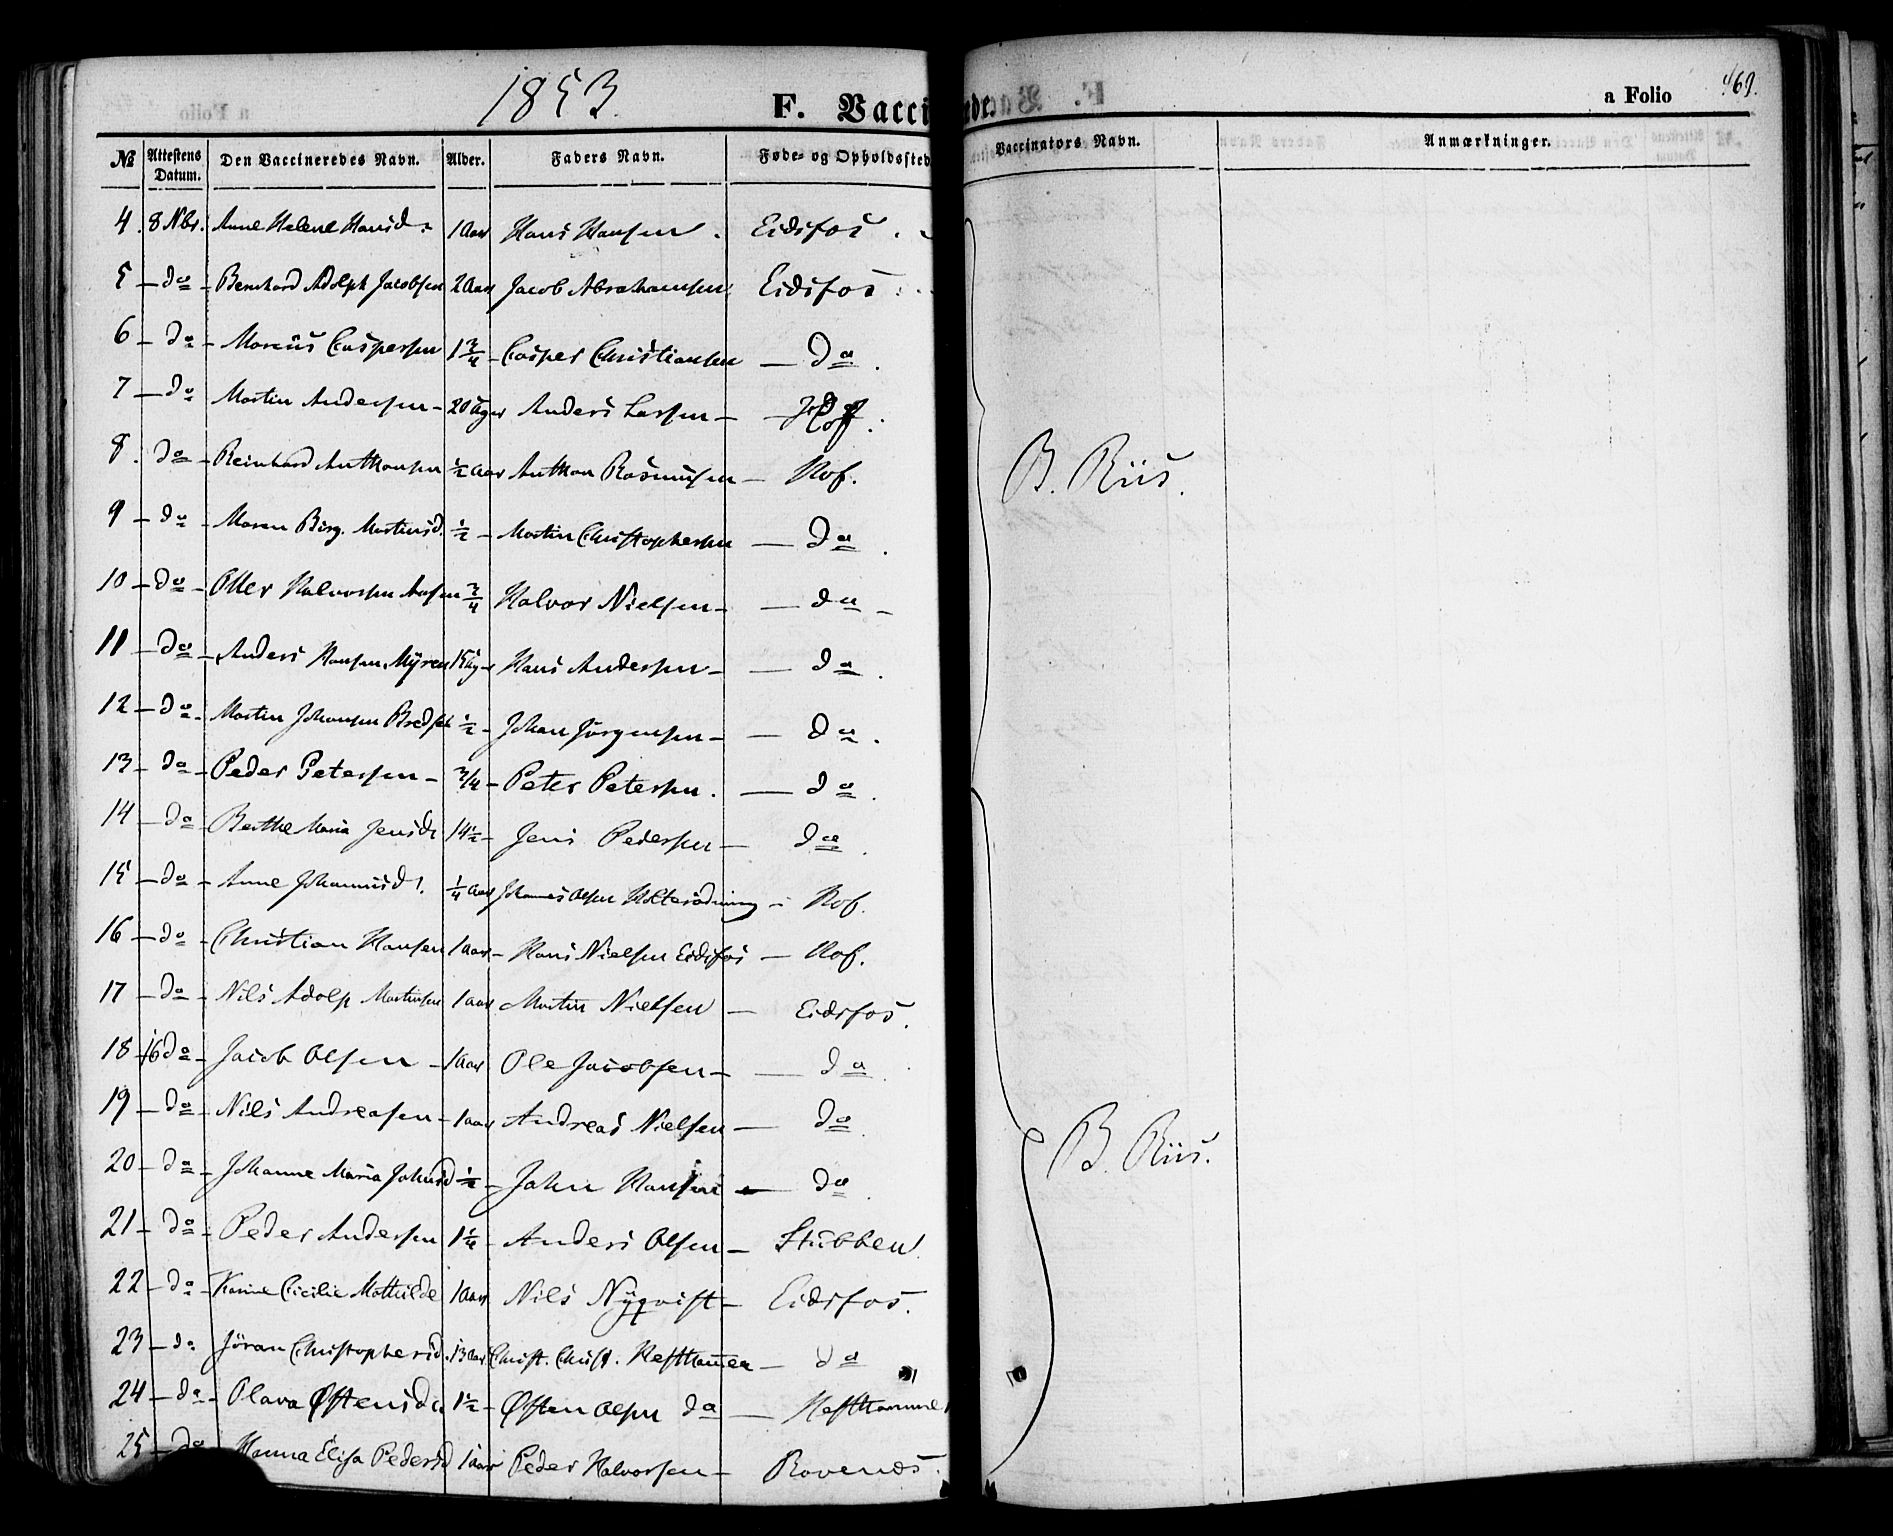 1853.
F. Vacci
nede.
a Folio 469.
№ Attestens Datum. Den Vaccineredes Navn. Alder. Faders Navn. Føde- og Opholdssted Vaccinators Navn. Anmærkninger.
4 8 Nbr. Anne Helene Hansd. 1 Aar Hans Hansen. Eidsfos.
5 — do — Bernhard Adolph Jacobsen 2 Aar Jacob Abrahamsen Eidsfos.
6 — do — Marcus Caspersen 1 3/4 — Casper Christiansen — do.
7 — do Martin Andersen — 20 Uger Anders Larsen — Hof.
8. do — Reinhard Anthonsen 1/2 Aar Anthon Rasmusen — Hof.
B. Riis.
9 — do — Maren Birg. Martinsd. 1/2 — Martin Christophersen — do.
10 — do — Otter Halvorsen Aasen 3/4 Halvor Nielsen — — do —
11 — do — Anders Hansen Myren 15 Ug — Hans Andersen — — do.
12 — do — Martin Johansen 1/2 — Johan Jörgensen — — do.
13 — do — Peder Petersen — 3/4 — Peter Petersen. — do.
14 — do — Berthe Maria Jensdr 14 1/2 — Jens Pedersen — do.
15 — do — Anne Johannisd. 1/4 Aar Johannes Olsen — Hof.
16 — do — Christian Hansen 1 Aar — Hans Nielsen Eidsfos — Hof.
17 — do — Nils Adolp Martinsen 1 aar Martin Nielsen — Eidsfos.
18 16 do — Jacob Olsen — 1 Aar Ole Jacobsen — — do
19 — do — Nils Andreasen — 1 aar Andreas Nielsen — do
20 — do — Johanne Maria Johnsd 1/2 — John Hansen — do.
B. Riis.
21 — do — Peder Andersen 1 1/4 — Anders Olsen — Stubben.
22 — do — Karine Cicilie Mathilde 1 Aar Nils Nyqvist — Eidsfos.
23 — do Jöran Christophersd. 13 Aar Christ. Christ. Hefthammen — do
24 — do — Olava Østensdr 1 1/2 — Østen Olsen do — Hefthamme
25 — do Hanna Elisa Pedersd 1 aar Peder Halvorsen — Rovenæs.